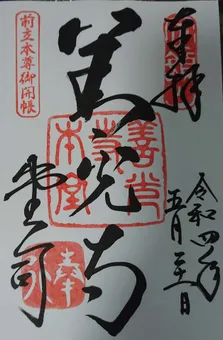 奉拝
令和四年
五月
善光寺
堂司
前立本尊御開帳
善光寺本堂